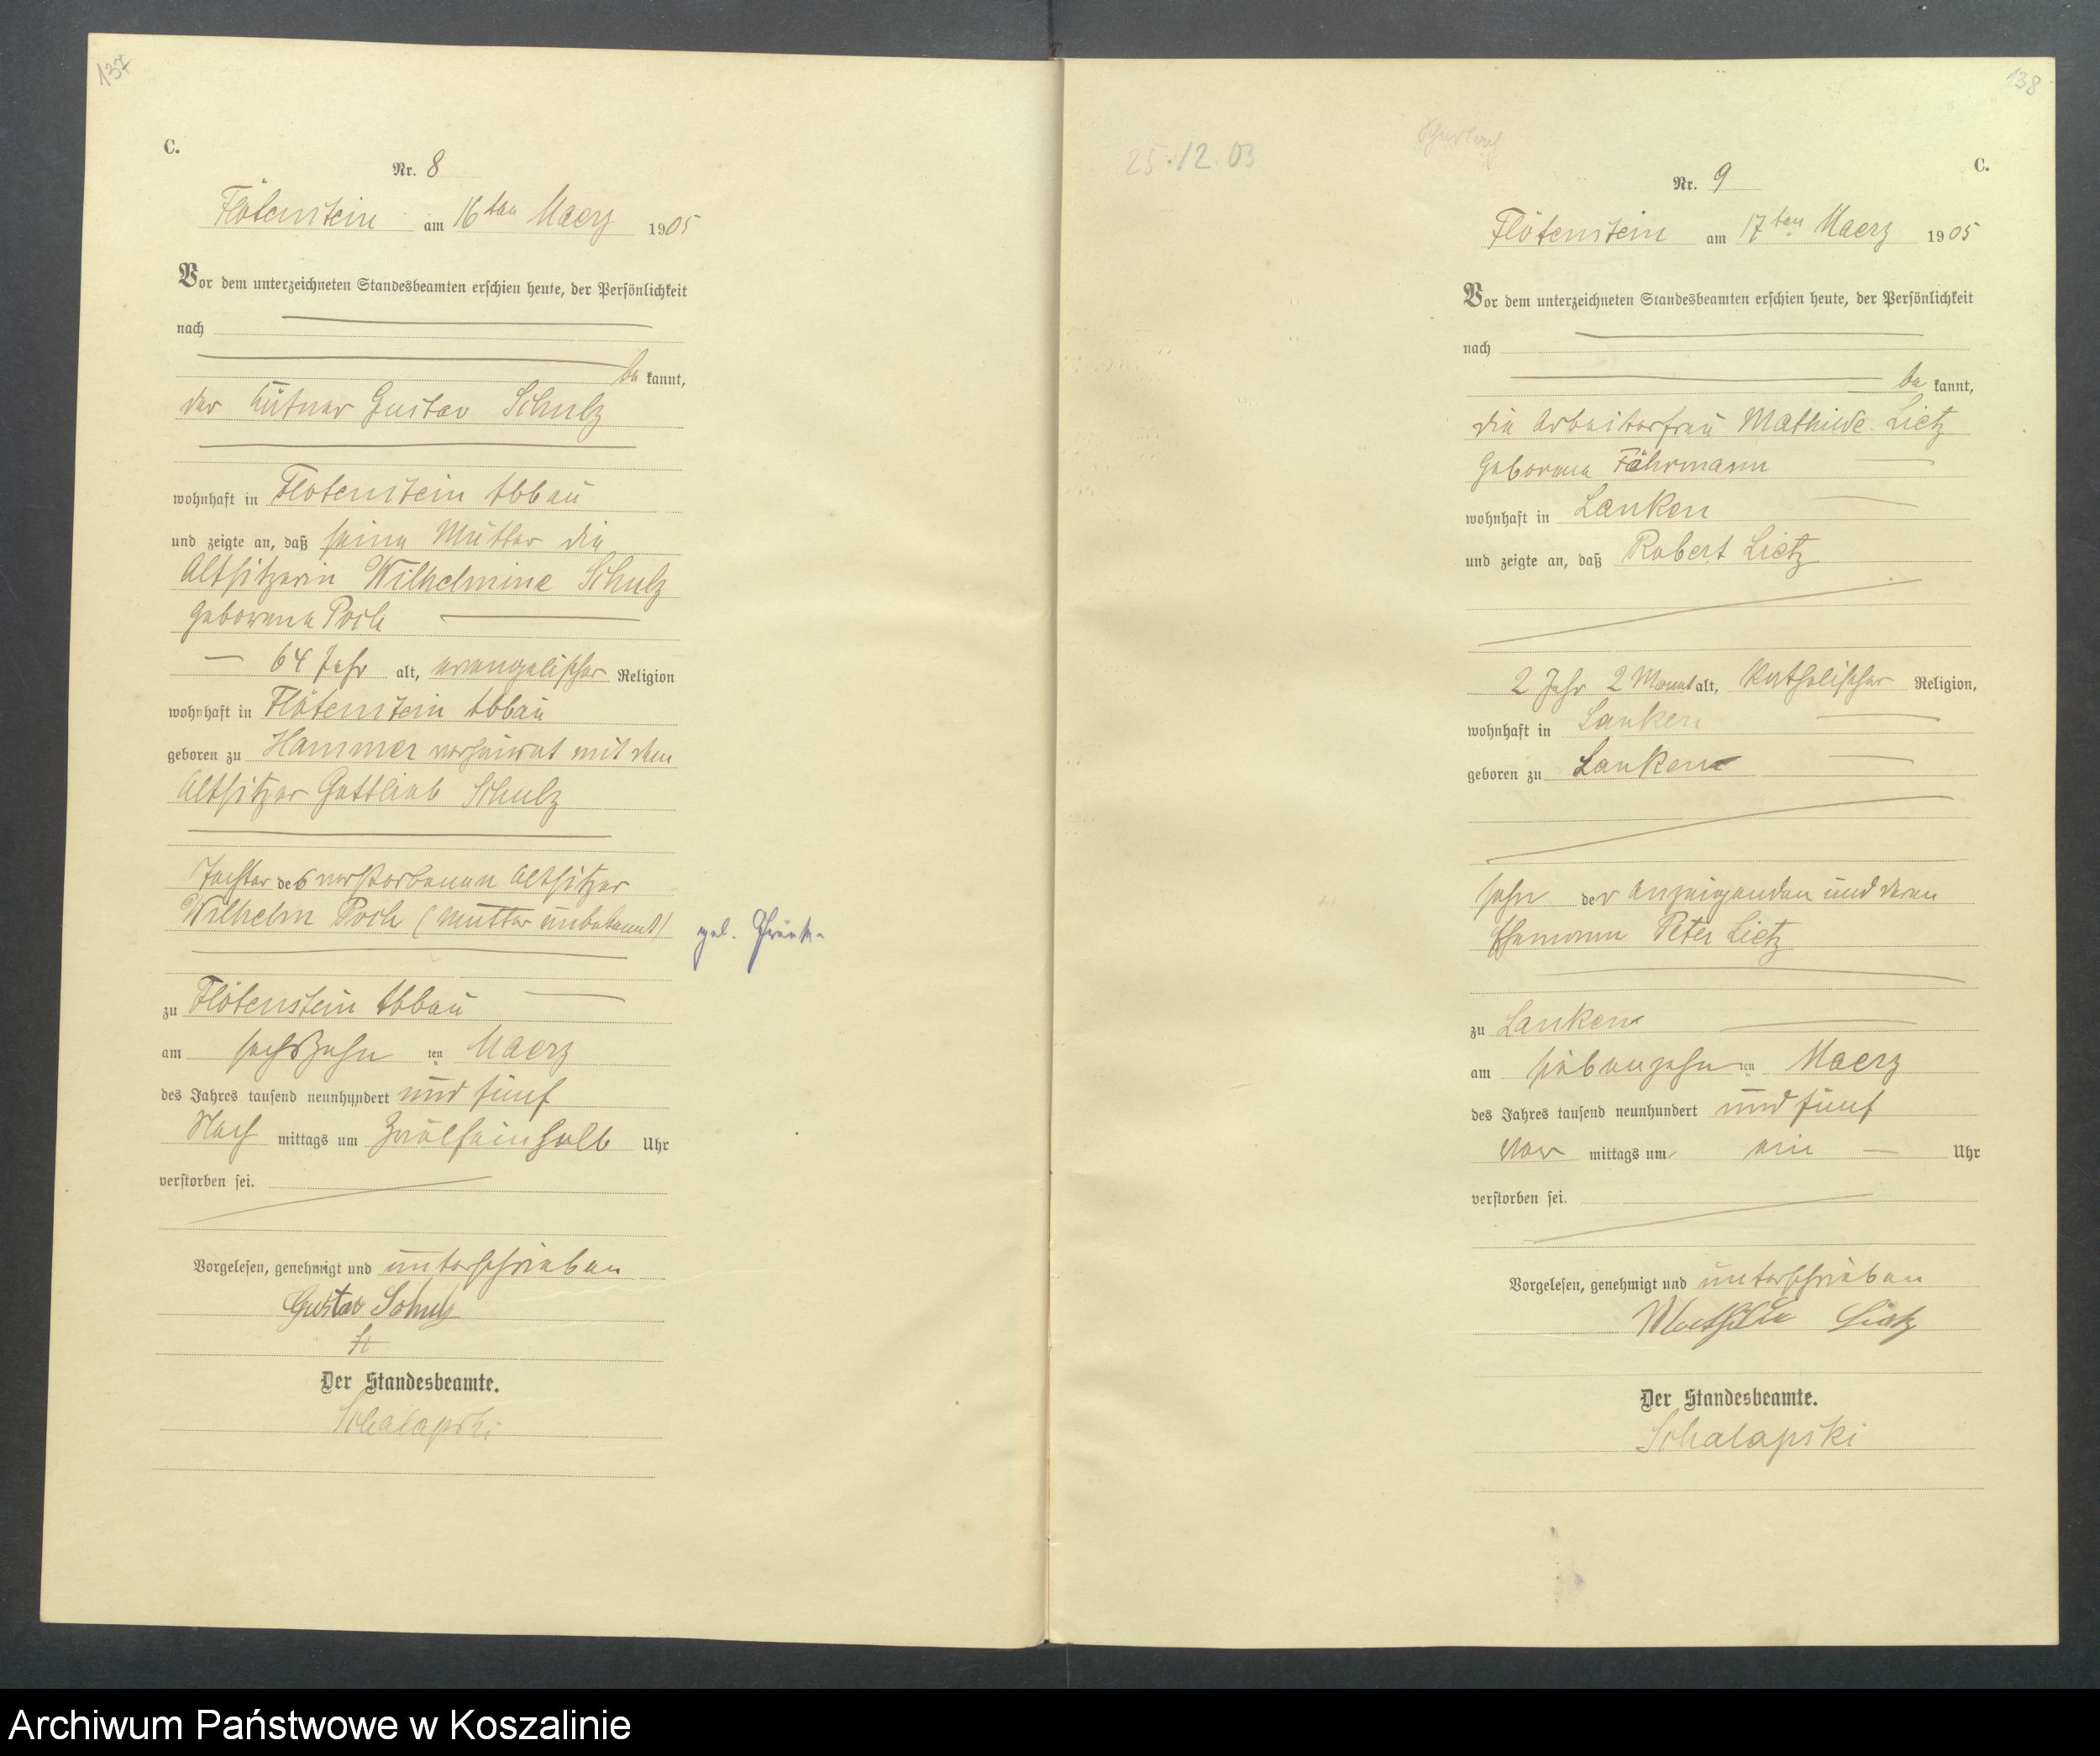 137
C.
Nr. 8
Flötenstein am 16ten Maerz 1905
Vor dem unterzeichneten Standesbeamten erschien heute, der Persönlichkeit
nach
be kannt,
der Gustav Schulz
wohnhaft in Flötenstein Abbau
und zeigte an, daß seine Mutter die
Altsitzerin Wilhelmine Schulz
geborene Poch
64 Jahr alt, evangelischer Religion
wohnhaft in Flötenstein Abbau
geboren zu Hammer verheirat mit dem
Altsitzer Gottlieb Schulz
Tochter des verstorbenen Altsitzer
Wilhelm Poch (Mutter unbekannt)
gel.
zu Flötenstein Abbau
am sechszehn ten Maerz
des Jahres tausend neunhundert und fünf
Nach mittags um Uhr
verstorben sei.
Vorgelesen, genehmigt und unterschrieben
Gustav Schulz
Der Standesbeamte.
Schalapski
138
25.12.03
C.
Nr. 9
Flötenstein am 17ten Maerz 1905
Vor dem unterzeichneten Standesbeamten erschien heute, der Persönlichkeit
nach
be kannt,
die Arbeiterfrau Mathilde Lietz
geborene Fährmann
wohnhaft in Lanken
und zeigte an, daß Robert Lietz
2 Jahr 2 Monat alt, katholischer Religion,
wohnhaft in Lanken
geboren zu Lanken
Sohn der Anzeigenden und deren
Ehemann Peter Lietz
zu Lanken
am siebenzehn ten Maerz
des Jahres tausend neunhundert und fünf
Vor mittags um Uhr
verstorben sei.
Vorgelesen, genehmigt und unterschrieben
Mathilde Lietz
Der Standesbeamte.
Schalapski
Archiwum Państwowe w Koszalinie